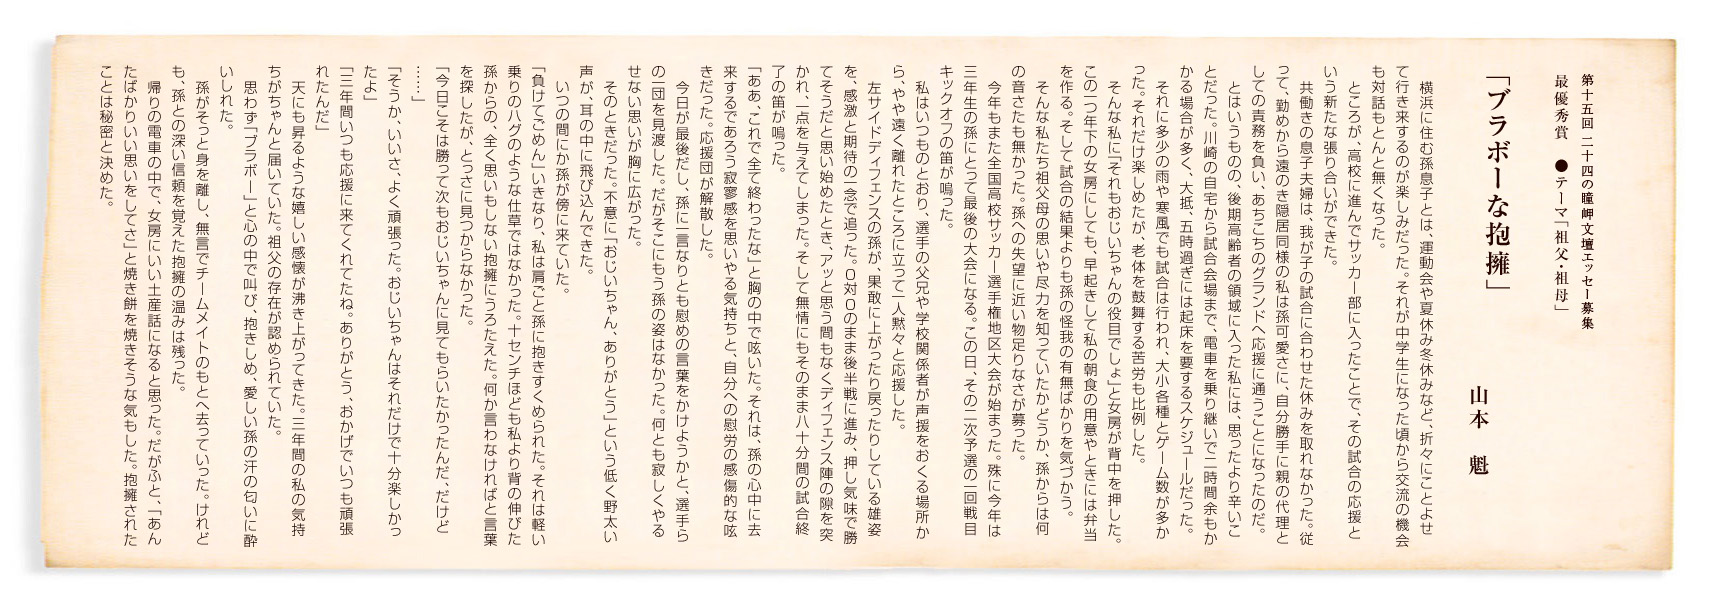 第十五回 二十四の瞳岬文壇エッセー募集
最優秀賞 ●テーマ「祖父・祖母」
「ブラボーな抱擁」
山本 魁
横浜に住む孫息子とは、運動会や夏休み冬休みなど、折々にことよせ
て行き来するのが楽しみだった。それが中学生になった頃から交流の機会
も対話もとんと無くなった。
ところが、高校に進んでサッカー部に入ったことで、その試合の応援と
いう新たな張り合いができた。
共働きの息子夫婦は、我が子の試合に合わせた休みを取れなかった。従
って、勤めから遠のき隠居同様の私は孫可愛さに、自分勝手に親の代理と
しての責務を負い、あちこちのグランドへ応援に通うことになったのだ。
とはいうものの、後期高齢者の領域に入った私には、思ったより辛いこ
とだった。川崎の自宅から試合会場まで、電車を乗り継いで二時間余もか
かる場合が多く、大抵、五時過ぎには起床を要するスケジュールだった。
それに多少の雨や寒風でも試合は行われ、大小各種とゲーム数が多か
った。それだけ楽しめたが、老体を鼓舞する苦労も比例した。
そんな私に「それもおじいちゃんの役目でしょ」と女房が背中を押した。
この二つ年下の女房にしても、早起きして私の朝食の用意やときには弁当
を作る。そして試合の結果よりも孫の怪我の有無ばかりを気づかう。
そんな私たち祖父母の思いや尽力を知っていたかどうか、孫からは何
の音さたも無かった。孫への失望に近い物足りなさが募った。
今年もまた全国高校サッカー選手権地区大会が始まった。殊に今年は
三年生の孫にとって最後の大会になる。この日、その二次予選の一回戦目
キックオフの笛が鳴った。
私はいつものとおり、選手の父兄や学校関係者が声援をおくる場所か
ら、やや遠く離れたところに立って一人黙々と応援した。
左サイドディフェンスの孫が、果敢に上がったり戻ったりしている雄姿
を、感激と期待の一念で追った。0対0のまま後半戦に進み、押し気味で勝
てそうだと思い始めたとき、アッと思う間もなくディフェンス陣の隙を突
かれ、一点を与えてしまった。そして無情にもそのまま八十分間の試合終
了の笛が鳴った。
「ああ、これで全て終わったな」と胸の中で呟いた。それは、孫の心中に去
来するであろう寂寥感を思いやる気持ちと、自分への慰労の感傷的な呟
きだった。応援団が解散した。
今日が最後だし、孫に一言なりとも慰めの言葉をかけようかと、選手ら
の一団を見渡した。だがそこにもう孫の姿はなかった。何とも寂しくやる
せない思いが胸に広がった。
そのときだった。不意に「おじいちゃん、ありがとう」という低く野太い
声が、耳の中に飛び込んできた。
いつの間にか孫が傍に来ていた。
「負けてごめん」いきなり、私は肩ごと孫に抱きすくめられた。それは軽い
乗りのハグのような仕草ではなかった。十センチほども私より背の伸びた
孫からの、全く思いもしない抱擁にうろたえた。何か言わなければと言葉
を探したが、とっさに見つからなかった。
「今日こそは勝って次もおじいちゃんに見てもらいたかったんだ、だけど
……」
「そうか、いいさ、よく頑張った。おじいちゃんはそれだけで十分楽しかっ
たよ」
「三年間いつも応援に来てくれてたね。ありがとう、おかげでいつも頑張
れたんだ」
天にも昇るような嬉しい感懐が沸き上がってきた。三年間の私の気持
ちがちゃんと届いていた。祖父の存在が認められていた。
思わず「ブラボー」と心の中で叫び、抱きしめ、愛しい孫の汗の匂いに酔
いしれた。
孫がそっと身を離し、無言でチームメイトのもとへ去っていった。けれど
も、孫との深い信頼を覚えた抱擁の温みは残った。
帰りの電車の中で、女房にいい土産話になると思った。だがふと、「あん
たばかりいい思いをしてさ」と焼き餅を焼きそうな気もした。抱擁された
ことは秘密と決めた。